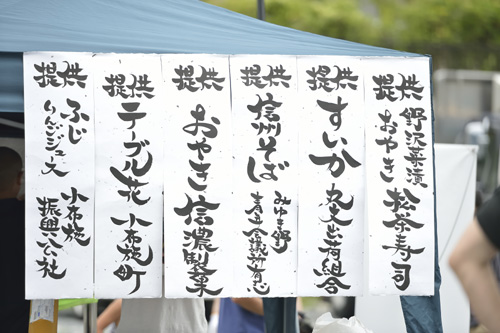 提供
野沢菜漬
おやき
松茶寿司
提供
すいか
丸文出荷組合
提供
信州そば
みゆき野
青年会議所有志
提供
おやき
信濃製菓
提供
テーブル花
小布施町
提供
ふじ
りんごジュース
小布施
振興公社